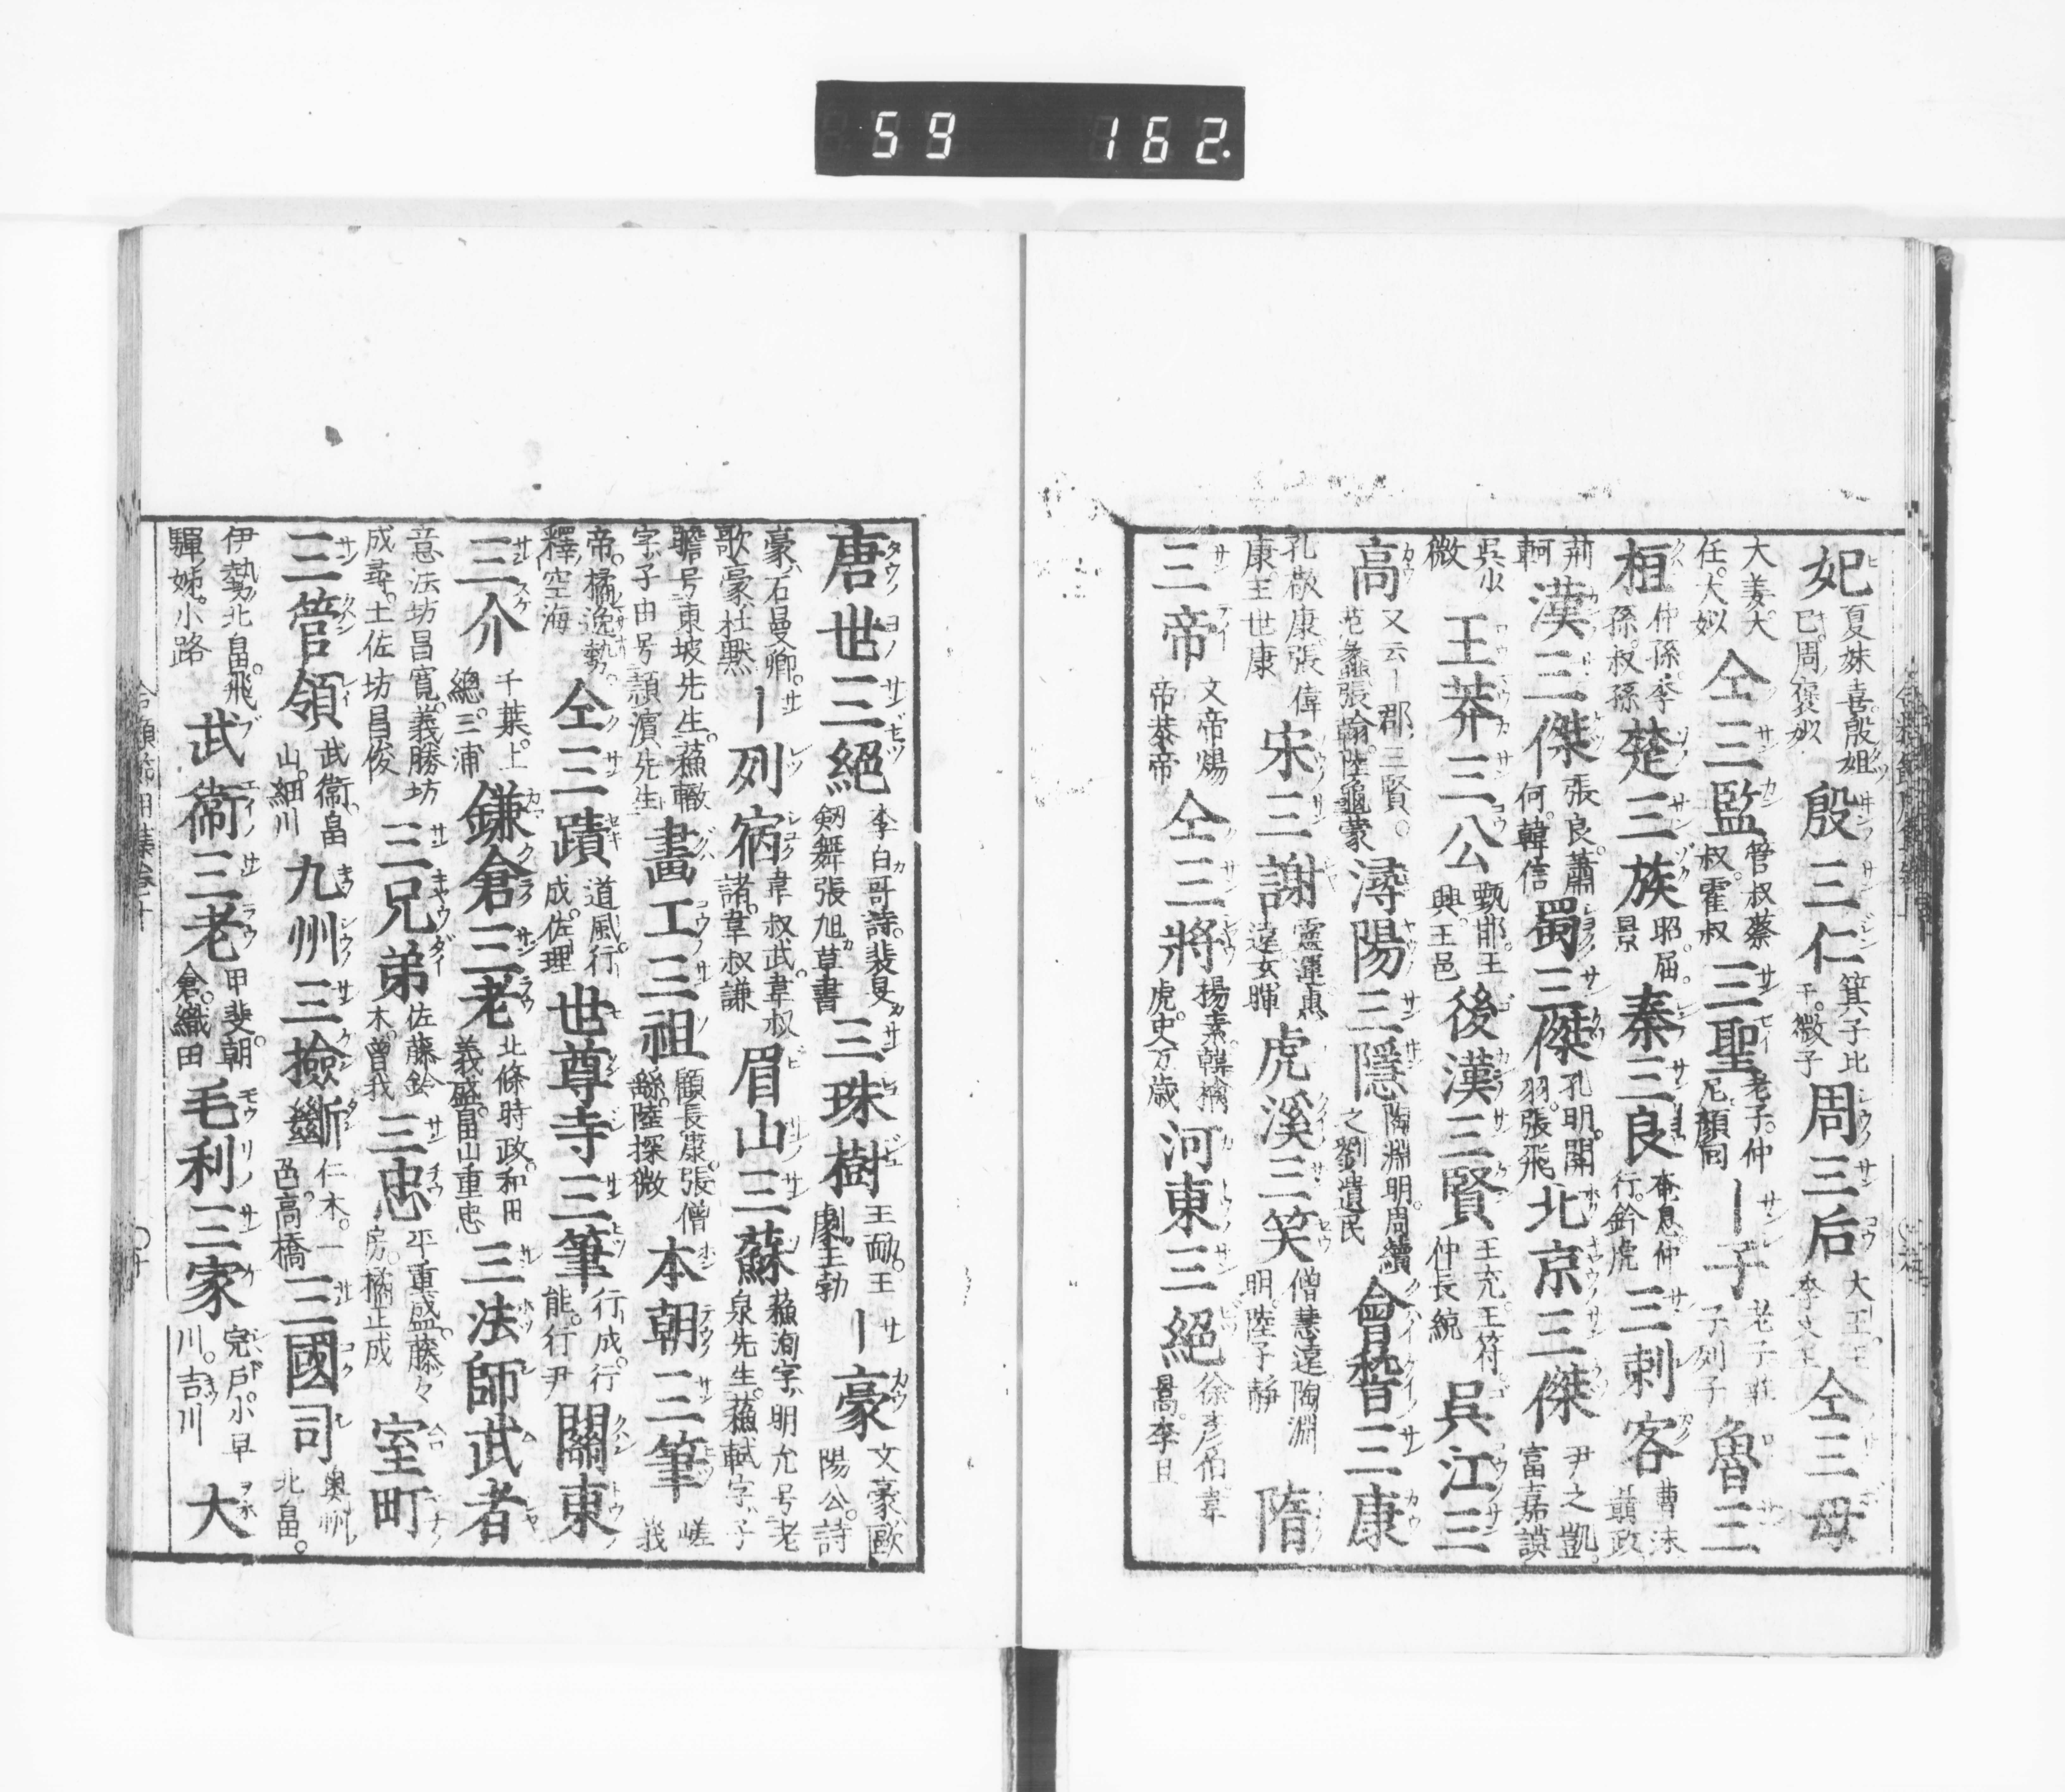 59 162.
妃 夏妹喜。殷妲己。周褒姒 殷三仁 箕子比干。微子 周三后 大王。王季文王 仝三母
大姜。大任。大姒 仝三監 管叔蔡叔。霍叔 三聖 老子。仲尼。顏回 ー子 老子莊子列子 魯三
桓 仲孫。季孫。叔孫 楚三族 昭。屈。景 秦三良 奄息。仲行。鈴虎 三刺客 曹沫 聶政
荊軻 漢三傑 張良。蕭何。韓信 蜀三傑 孔明。關羽。張飛 北京三傑 尹之凱。富嘉謨
吳少微 王莽三公 甄邯。王興。王邑 後漢三賢 王充。王符。仲長統 吳江三
高 又云ー郡三賢。范蠡張翰。陸龜蒙 潯陽三隱 陶淵明。周續之劉遺民 會稽三康
孔敬康。張偉康。王世康 宋三謝 靈運惠連玄暉 虎溪三笑 僧慧遠陶淵明。陸子靜 隋
三帝 文帝煬帝恭帝 仝三將 揚素。韓擒虎。史万歲 河東三絕 徐彥伯韋暠。李亘
唐世三絕 李白哥詩。裴旻劔舞張旭草書 三珠樹 王勔。王劇。王勃 ー豪 文豪歐陽公。詩
豪石曼卿。歌豪杜默 ー列宿 韋叔武。韋叔諸。韋叔謙 眉山三蘇 蘓洵字明允号老泉先生。蘓軾字子
瞻号東坡先生。蘓轍字子由号潁濵先生 畫工三祖 顧長康。張僧繇。陸探微 本朝三筆 嵯峩
帝。橘逸勢。釋空海 仝三蹟 道風。行成。佐理 世尊寺三筆 行成。行能。行尹 關東
三介 千葉。上總。三浦 鎌倉三老 北條時政。和田義盛。畠山重忠 三法師武者
意法坊昌寛。義勝坊成尋。土佐坊昌俊 三兄弟 佐藤鈴木。曽我 三忠 平重盛。藤々房。橘正成 室町
三管領 武衞。畠山。細川 九州三撿斷 仁木。一色。高橋 三國司 奥州 北畠。
伊勢北畠。飛騨。姊。小路 武衞三老 甲斐。朝倉。織田 毛利三家 宍戶。小早川。吉川 大